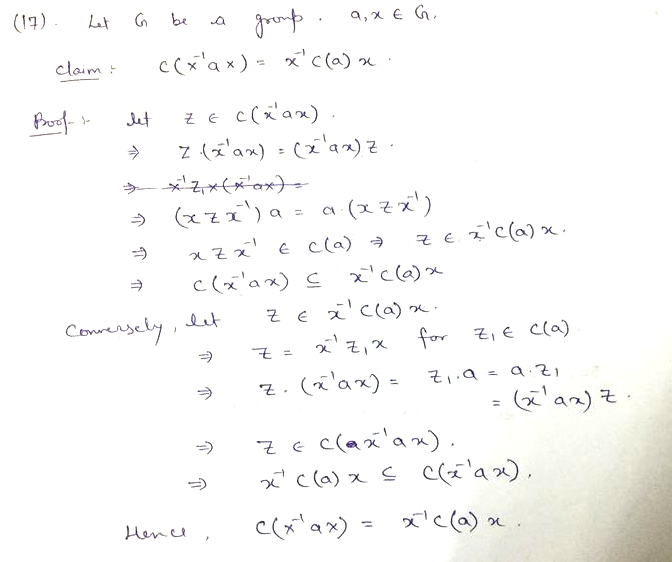 (17). Let G be a group. a, x ∈ G.
Claim :- C(x⁻¹ax) = x⁻¹C(a)x.
Proof :- let z ∈ C(x⁻¹ax).
⇒ z.(x⁻¹ax) = (x⁻¹ax)z.
⇒ x⁻¹z₁x(x⁻¹ax) =
⇒ (xzx⁻¹)a = a.(xzx⁻¹)
⇒ xzx⁻¹ ∈ C(a) ⇒ z ∈ x⁻¹C(a)x.
⇒ C(x⁻¹ax) ⊆ x⁻¹C(a)x
Conversely, let z ∈ x⁻¹C(a)x.
⇒ z = x⁻¹z₁x for z₁ ∈ C(a)
⇒ z.(x⁻¹ax) = z₁.a = a.z₁
= (x⁻¹ax)z.
⇒ z ∈ C(x⁻¹ax).
⇒ x⁻¹C(a)x ⊆ C(x⁻¹ax).
Hence, C(x⁻¹ax) = x⁻¹C(a)x.